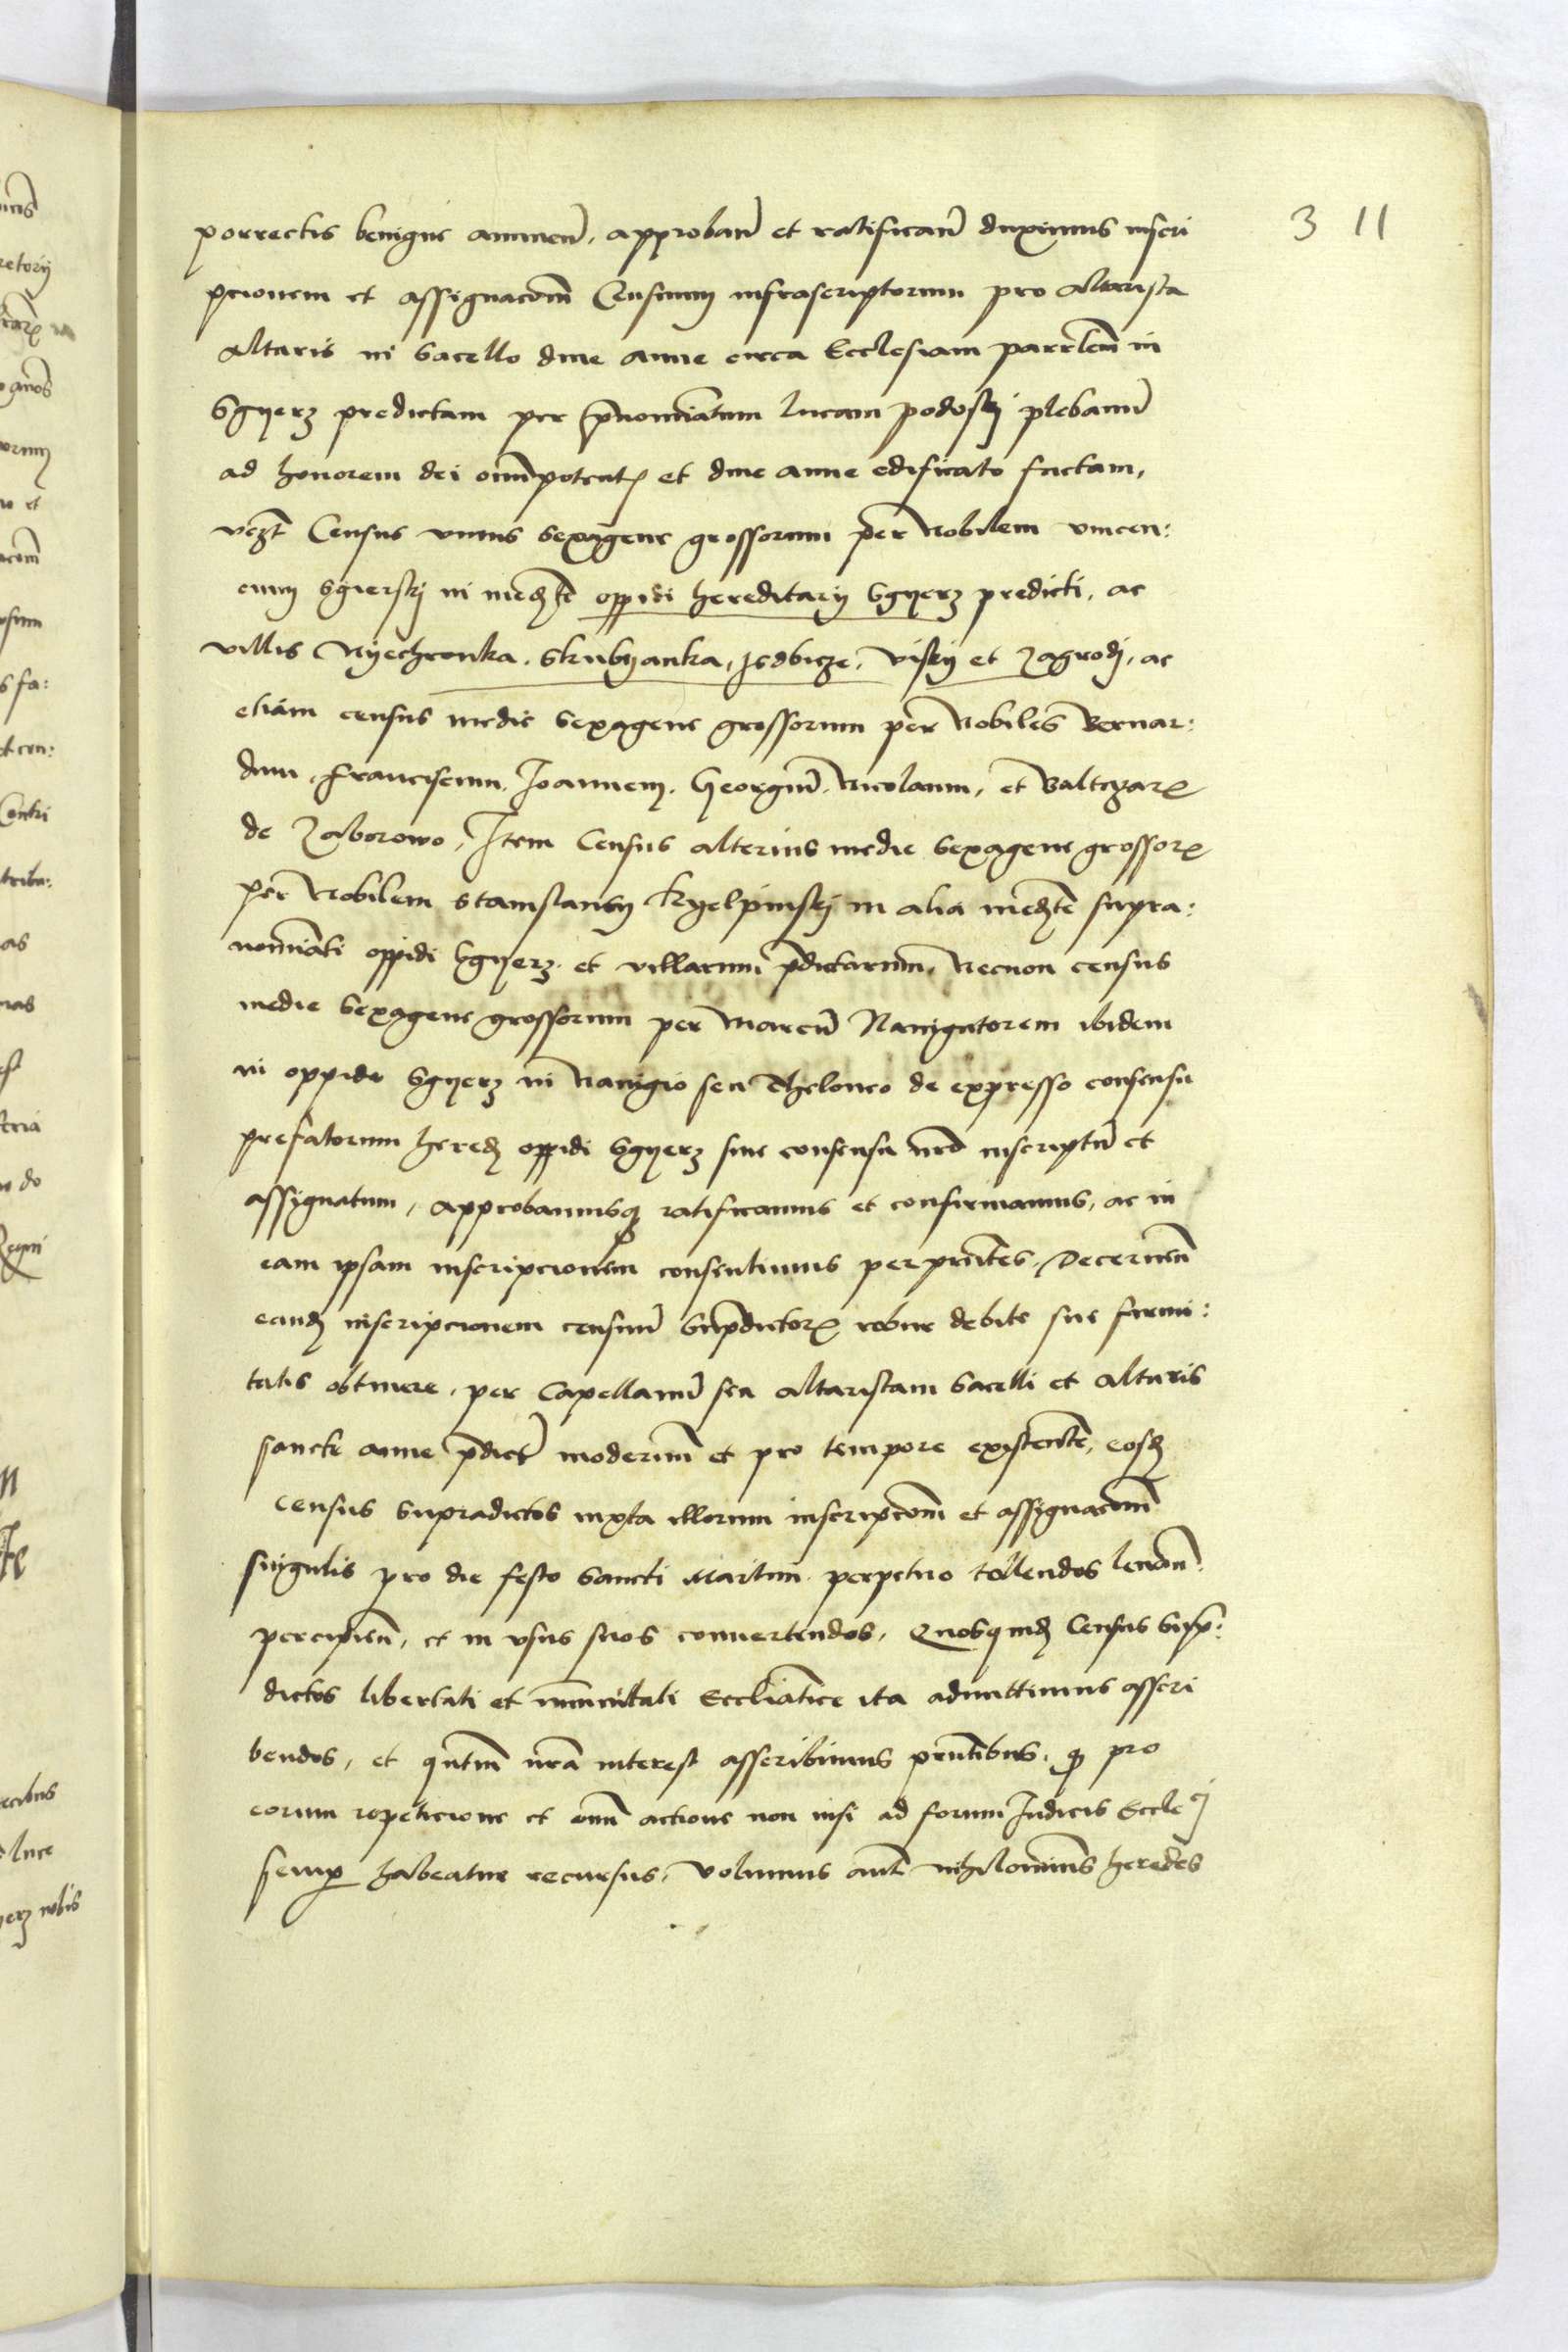 3 11
porrectis benigne annuen̄, approban̄ et ratifican̄ duximus inscri
pcionem et assignacom̄ Censuum infrascriptorum pro altarista
altaris in Sacello dine anne circa Ecclesiam parr̄lem in
Sgyerz predictam per p̄nominatum lucam podoskj plebanū
ad honorem dei om̄ipotentꝭ et dine anne edificato factam,
vcz̄t Census unius sexagene grossorum per Nobilem vincen:
cium Sgierskj in medꝫte oppidi hereditarij Sgyerz predicti, ac
villis Nyechronka, Skubyanka, Jsdbicze, visky et Zagrodj, ac
etiam census medie sexagene grossorum per Nobiles Bernar:
dum, Franciscum, Joannem, Georgiū, Nicolaum, et Baltczarꝝ
de Zaborowo, Item Census alterius medie sexagene grossorꝝ
per Nobilem Stanislaum Kyelpinskj in alia medꝫte supra:
nominati oppidi Sgyerz et villarum p̄dictarum, Necnon census
medie sexagene grossorum per Marcū Navigatorem ibidem
in oppido Sgyerz in Navigio seu Theloneo de expresso consensu
prefatorum heredꝫ oppidi Sgyerz sine consensu nr̄o inscriptū et
assignatum, Approbamusqꝫ ratificamus et confirmamus, ac in
eam ipsam inscripcionem consentimus per pn̄tes, Decernen̄
eandꝫ inscripcionem censuū sup̄dictorꝝ robur debite sue firmi:
tatis obtinere, per Capellanū seu altaristam Sacelli et altaris
sancte anne p̄dict̄ modernū et pro tempore existentē, eosdꝫ
census supradictos iuxta illorum inscripcom̄ et assignacom̄
singulis pro die festo Sancti Martini perpetuo tollendos levan̄
percipien̄, et in usus suos convertendos, Quosquidꝫ Census sup̄:
dictos libertati et immunitati Eccl̄iastice ita admittimus asscri
bendos, et qn̄tum nr̄a interest asscribimus pn̄tibus, qꝫ pro
eorum repeticione et om̄i actione non nisi ad forum Iudicis Eccl̄ꝯi
semp̱ habeatur recursus, Volumus aut̄ nihilominus heredes